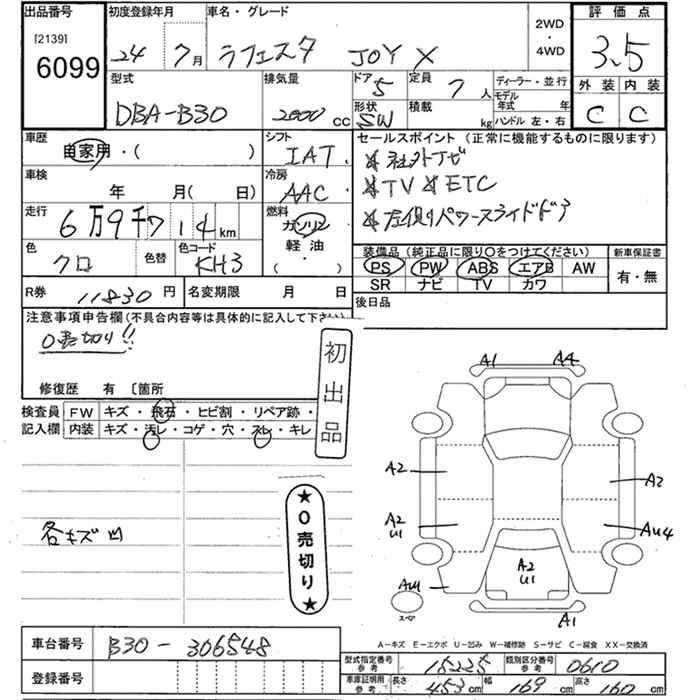 出品番号 初度登録年月 車名・グレード 2WD・4WD 評価点
[2139]
6099
24年 7月 ラフェスタ JOY X 3.5
型式 排気量 ドア 5 定員 7人 ディーラー・並行 外装 内装
モデル年式 年
DBA-B30 2000cc 形状 SW 積載 kg ハンドル 左・右 C C
車歴 シフト セールスポイント (正常に機能するものに限ります)
自家用・( ) IAT
車検 冷房 ★社外ナビ
年 月( 日) AAC ★TV ★ETC
走行 燃料 ★左側パワースライドドア
6万9千714km ガソリン
軽油
( ・ )
色 色替 色コード 装備品 (純正品に限り○をつけてください) 新車保証書
クロ KH3 PS PW ABS エアB AW 有・無
SR ナビ TV カワ
R券 11830円 名変期限 月 日 後日品
注意事項申告欄(不具合内容等は具体的に記入して下さい)
0売切り!!
初出品
修復歴 有 〔箇所
検査員記入欄 FW キズ・飛石・ヒビ割・リペア跡・
内装 キズ・汚レ・コゲ・穴・スレ・キレ
A1 A4
A2 A2
A2 U1 AU4
各キズ凹
★0売切り★
A2 U1
AU1
スペア
A1
A-キズ E-エクボ U-凹み W-補修跡 S-サビ C-腐食 XX-交換済
車台番号 B30-306548
型式指定番号参考 15225 類別区分番号参考 0610
登録番号
車庫証明用参考 長さ 453cm 幅 169cm 高さ 160cm